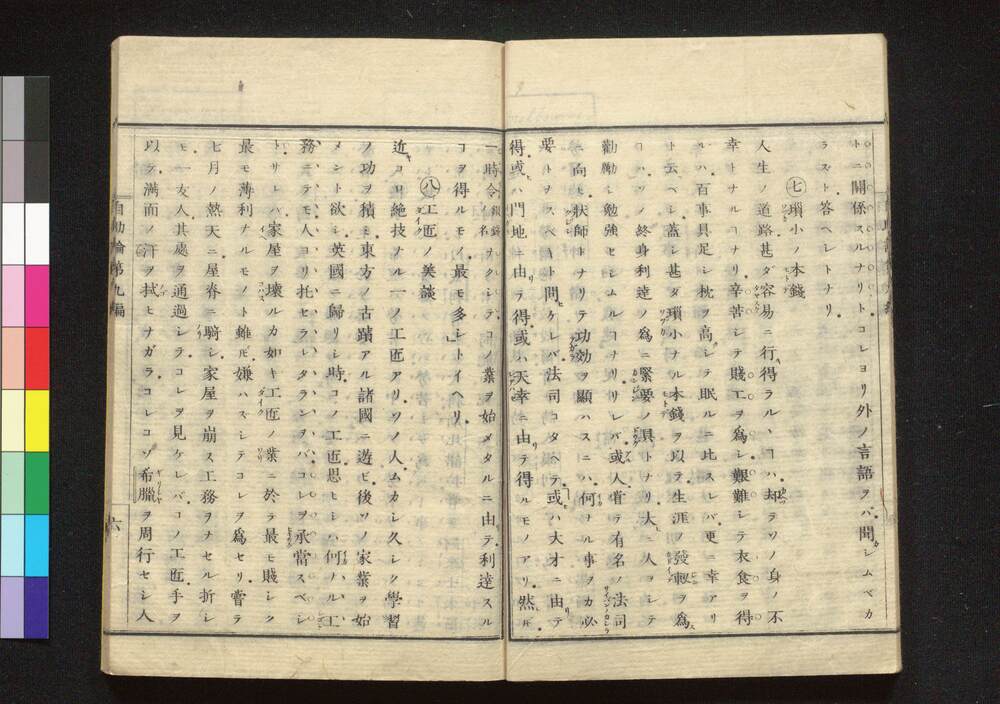 トニ關係スルナリトコレヨリ外ノ言語ヲバ聞シムベカ
ラズト答ヘシトナリ
㊆瑣小ノ本錢
人生ノ道路甚ダ容易ニ行得ラルヽコハ却テソノ身ノ不
幸トナルコナリ辛苦シテ賤工ヲ爲シ艱難シテ衣食ヲ得
ルハ百事具足シ枕ヲ高シテ眠ルニ比スレバ更ニ幸アリ
ト云ベシ蓋シ甚ダ瑣小ナル本錢ヲ以テ生涯ノ發軔ヲ爲
コハソノ終身利達ノ爲ニ緊要ノ具トナリ大ニ人ヲシテ
勸勵シ勉強セシムルコヲリシレバ或人甞テ有名ノ法司
ニ向モ狀師トナリテ功効ヲ顯ハスニハ何ナル事ヲカ必
要トヲスベキト問ケレバ法司コタヘテ或ハ大才ニ由テ
得或ハ門地ニ由テ得或ハ天幸ニ由テ得ルモノアリ然ル
一時令ヲクシテコノ業ヲ始メタルニ由テ利達スル
コヲ得ルモノ最モ多シトイヘリ
㊇工匠ノ美談
近コロ絶技ナル一ノ工匠アリソノ人ムカシ久シク學習
ノ功ヲ積モ東方ノ古蹟アル諸國ニ遊ビ後ソノ家業ヲ始
メント欲シ英國ニ歸リシ時コノ工匠思ヒシハ何ハルノ工
務ニテモ人ヨリ托セラレタランヲバコレヲ承當スベシ
トサレバ家屋ヲ壞ルカ如キ工匠ノ業ニ於テ最モ賤シク
最モ薄利ナルモノト雖ドモ嫌ハズシテコレヲ爲セリ甞テ
七月ノ熱天ニ屋脊ニ騎シ家屋ヲ崩ス工務ヲナセル折シ
モ一友人其處ヲ通過シテコレヲ見ケレバコノ工匠手ヲ
以テ滿面ノ汗ヲ拭ヒナガラコレコソ希臘ヲ周行セシ人
自助論第九編
六